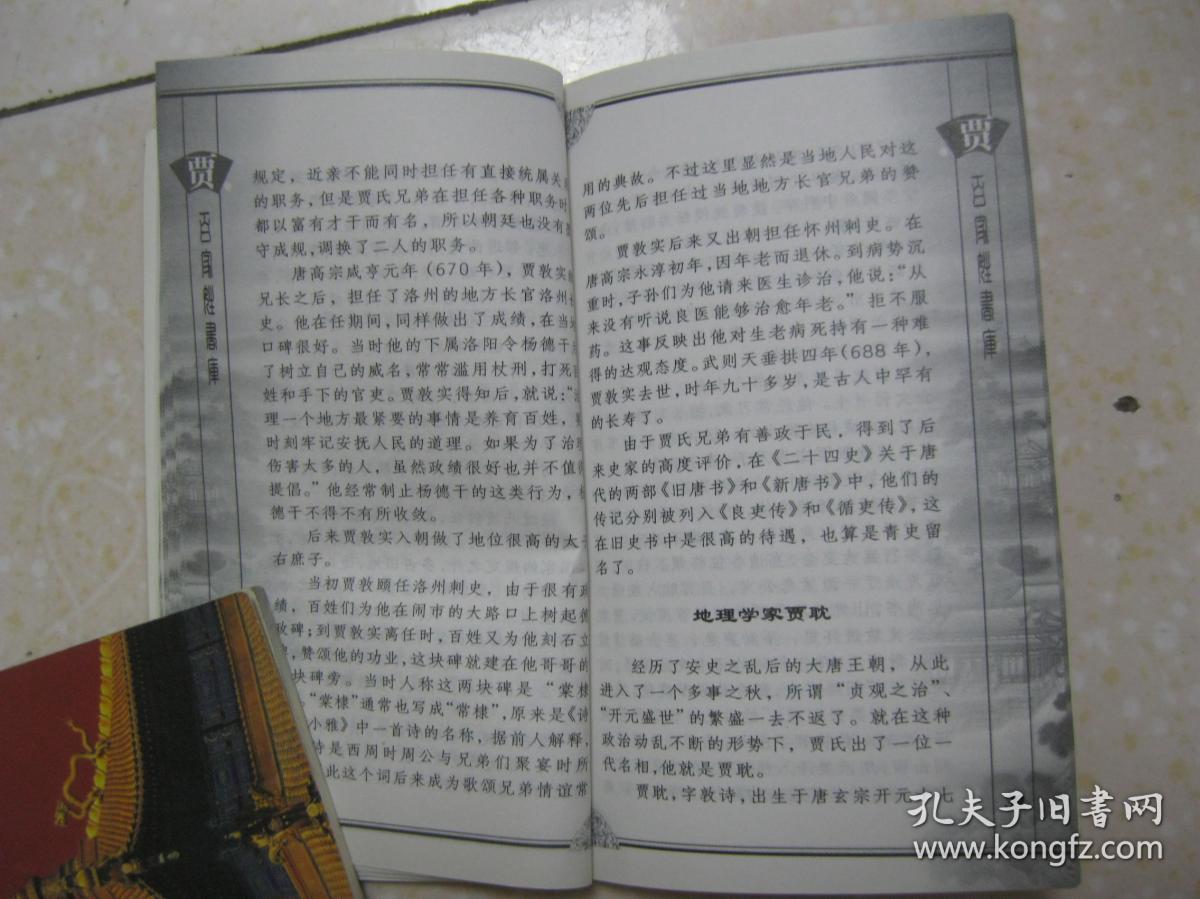 贾
百家姓书库
规定，近亲不能同时担任有直接统属关
的职务，但是贾氏兄弟在担任各种职务时
都以富有才干而有名，所以朝廷也没有
守成规，调换了二人的职务。
唐高宗咸亨元年（670年），贾敦实
兄长之后，担任了洛州的地方长官洛州
史。他在任期间，同样做出了成绩，在当
口碑很好。当时他的下属洛阳令杨德干
了树立自己的威名，常常滥用杖刑，打死
姓和手下的官吏。贾敦实得知后，就说：“
理一个地方最紧要的事情是养育百姓，
时刻牢记安抚人民的道理。如果为了治
伤害太多的人，虽然政绩很好也并不值
提倡。”他经常制止杨德干的这类行为，
德干不得不有所收敛。
后来贾敦实入朝做了地位很高的太子
右庶子。
当初贾敦颐任洛州刺史，由于很有政
绩，百姓们为他在闹市的大路口上树起德
政碑；到贾敦实离任时，百姓又为他刻石立
，赞颂他的功业，这块碑就建在他哥哥的
块碑旁。当时人称这两块碑是“棠棣
。“棠棣”通常也写成“常棣”，原来是《诗
小雅》中一首诗的名称，据前人解释，
诗是西周时周公与兄弟们聚宴时所
此这个词后来成为歌颂兄弟情谊常
用的典故。不过这里显然是当地人民对这
两位先后担任过当地地方长官兄弟的赞
颂。
贾敦实后来又出朝担任怀州刺史。在
唐高宗永淳初年，因年老而退休。到病势沉
重时，子孙们为他请来医生诊治，他说：“从
来没有听说良医能够治愈年老。”拒不服
药。这事反映出他对生老病死持有一种难
得的达观态度。武则天垂拱四年（688年），
贾敦实去世，时年九十多岁，是古人中罕有
的长寿了。
由于贾氏兄弟有善政于民，得到了后
来史家的高度评价，在《二十四史》关于唐
代的两部《旧唐书》和《新唐书》中，他们的
传记分别被列入《良吏传》和《循吏传》，这
在旧史书中是很高的待遇，也算是青史留
名了。
地理学家贾耽
经历了安史之乱后的大唐王朝，从此
进入了一个多事之秋，所谓“贞观之治”、
“开元盛世”的繁盛一去不返了。就在这种
政治动乱不断的形势下，贾氏出了一位一
代名相，他就是贾耽。
贾耽，字敦诗，出生于唐玄宗开元十七
贾
百家姓書庫
孔夫子旧书网
www.kongfz.com